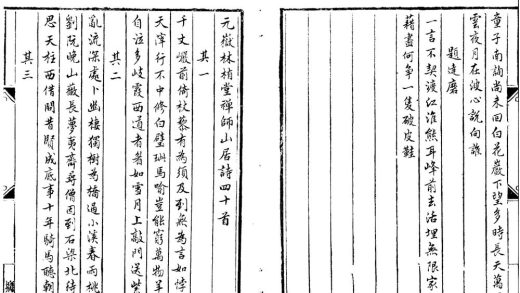 童子南詢尚未回白花巖下望多時長天萬
雲夜月在波心說向誰
題達磨
一言不契渡江淮熊耳峰前去活埋無限家
藉盡何爭一隻破皮鞋
元嶽林楨堂禪師山居詩四十首
其一
千丈巖前倚杖藜有為須及到無為言如悖
天渾行不中修白璧珊馬喻豈能窮萬物羊
自泣多岐霞西道者眉如雪月上敲門送紫
其二
亂流深處卜幽棲獨樹為橋過小溪春雨桃
劉阮晚山薇長夢夷齊尋僧因到石梁北待
思天柱西借問昔賢成底事十年騎馬聽朝
其三